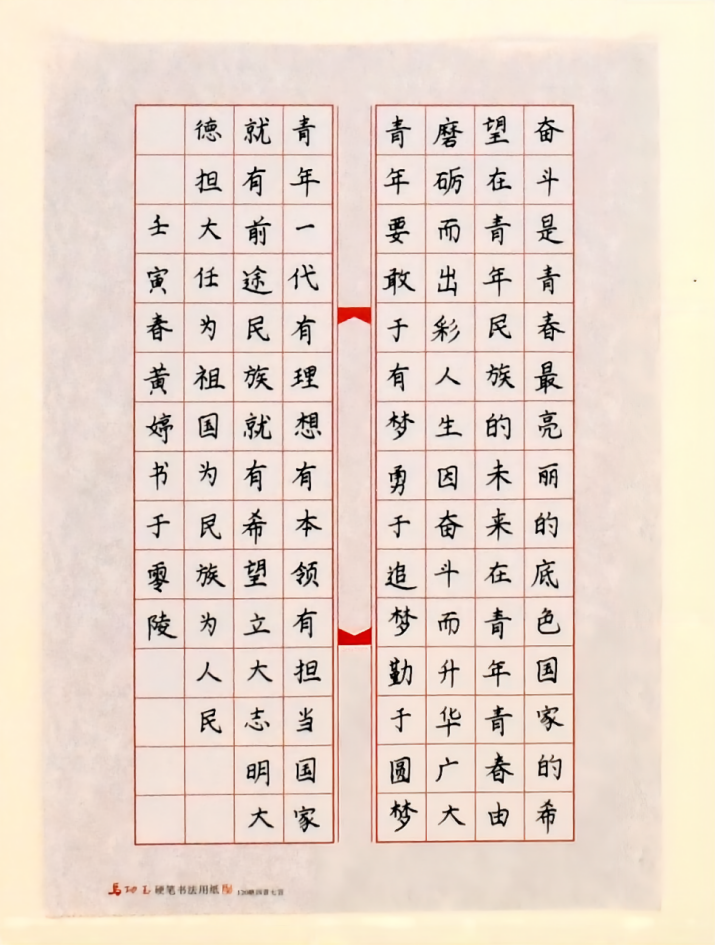 奋斗是青春最亮丽的底色国家的希
望在青年民族的未来在青年青春由
磨砺而出彩人生因奋斗而升华广大
青年要敢于有梦勇于追梦勤于圆梦
青年一代有理想有本领有担当国家
就有前途民族就有希望立大志明大
德担大任为祖国为民族为人民
壬寅春黄婷书于零陵
硬笔书法用纸